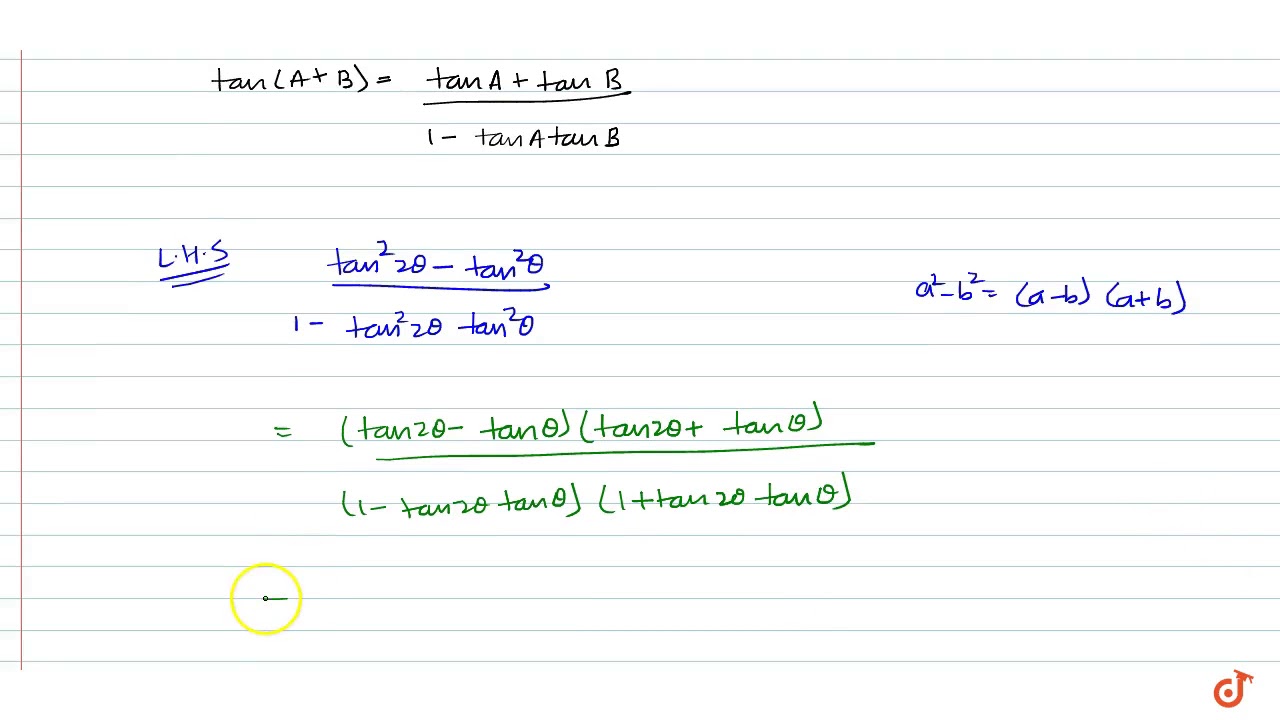 tan(A+B) = tanA + tan B
1 - tanA tanB
L.H.S tan²2θ - tan²θ
1 - tan²2θ tan²θ
a²-b² = (a-b) (a+b)
= (tan2θ - tanθ) (tan2θ + tanθ)
(1 - tan2θ tanθ) (1 + tan2θ tanθ)